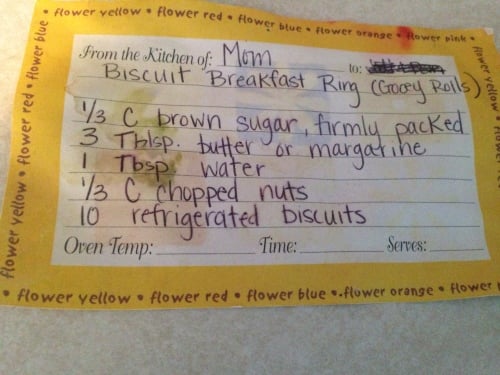 • flower yellow • flower red • flower blue • flower orange • flower pink •
flower yellow • flower red • flower blue
flower yellow
From the Kitchen of: Mom
to:
Biscuit Breakfast Ring (Gooey Rolls)
1/3 C brown sugar, firmly packed
3 Tblsp. butter or margarine
1 Tbsp water
1/3 C chopped nuts
10 refrigerated biscuits
Oven Temp: Time: Serves:
• flower yellow • flower red • flower blue • flower orange • flower